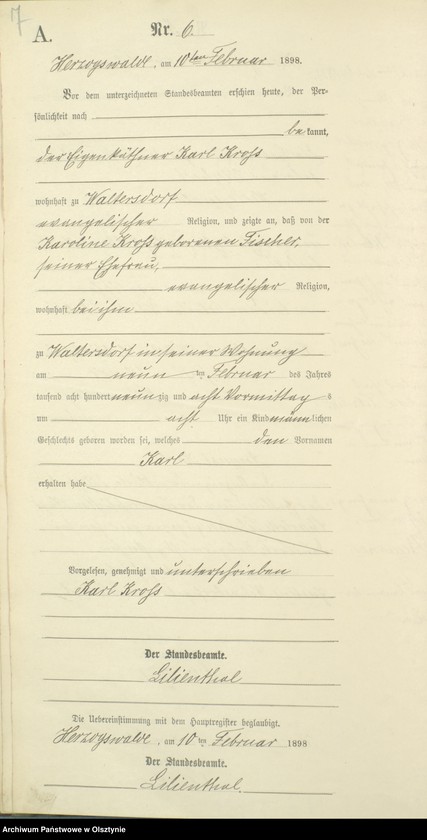 7
A.
Nr. 6.
Herzogswalde, am 10ten Februar 1898.
Vor dem unterzeichneten Standesbeamten erschien heute, der Per-
sönlichkeit nach
bekannt,
der Eigenkäthner Karl Kroß
wohnhaft zu Waltersdorf
evangelischer Religion, und zeigte an, daß von der
Karoline Kroß geborenen Fischer,
seiner Ehefrau,
evangelischer Religion,
wohnhaft bei ihm
zu Waltersdorf in seiner Wohnung
am neun ten Februar des Jahres
tausend acht hundert neunzig und acht Vormittag s
um acht Uhr ein Kind männlichen
Geschlechts geboren worden sei, welches den Vornamen
Karl
erhalten habe
Vorgelesen, genehmigt und unterschrieben
Karl Kroß
Der Standesbeamte.
Lilienthal
Die Uebereinstimmung mit dem Hauptregister beglaubigt.
Herzogswalde, am 10 ten Februar 1898
Der Standesbeamte.
Lilienthal.
Archiwum Państwowe w Olsztynie